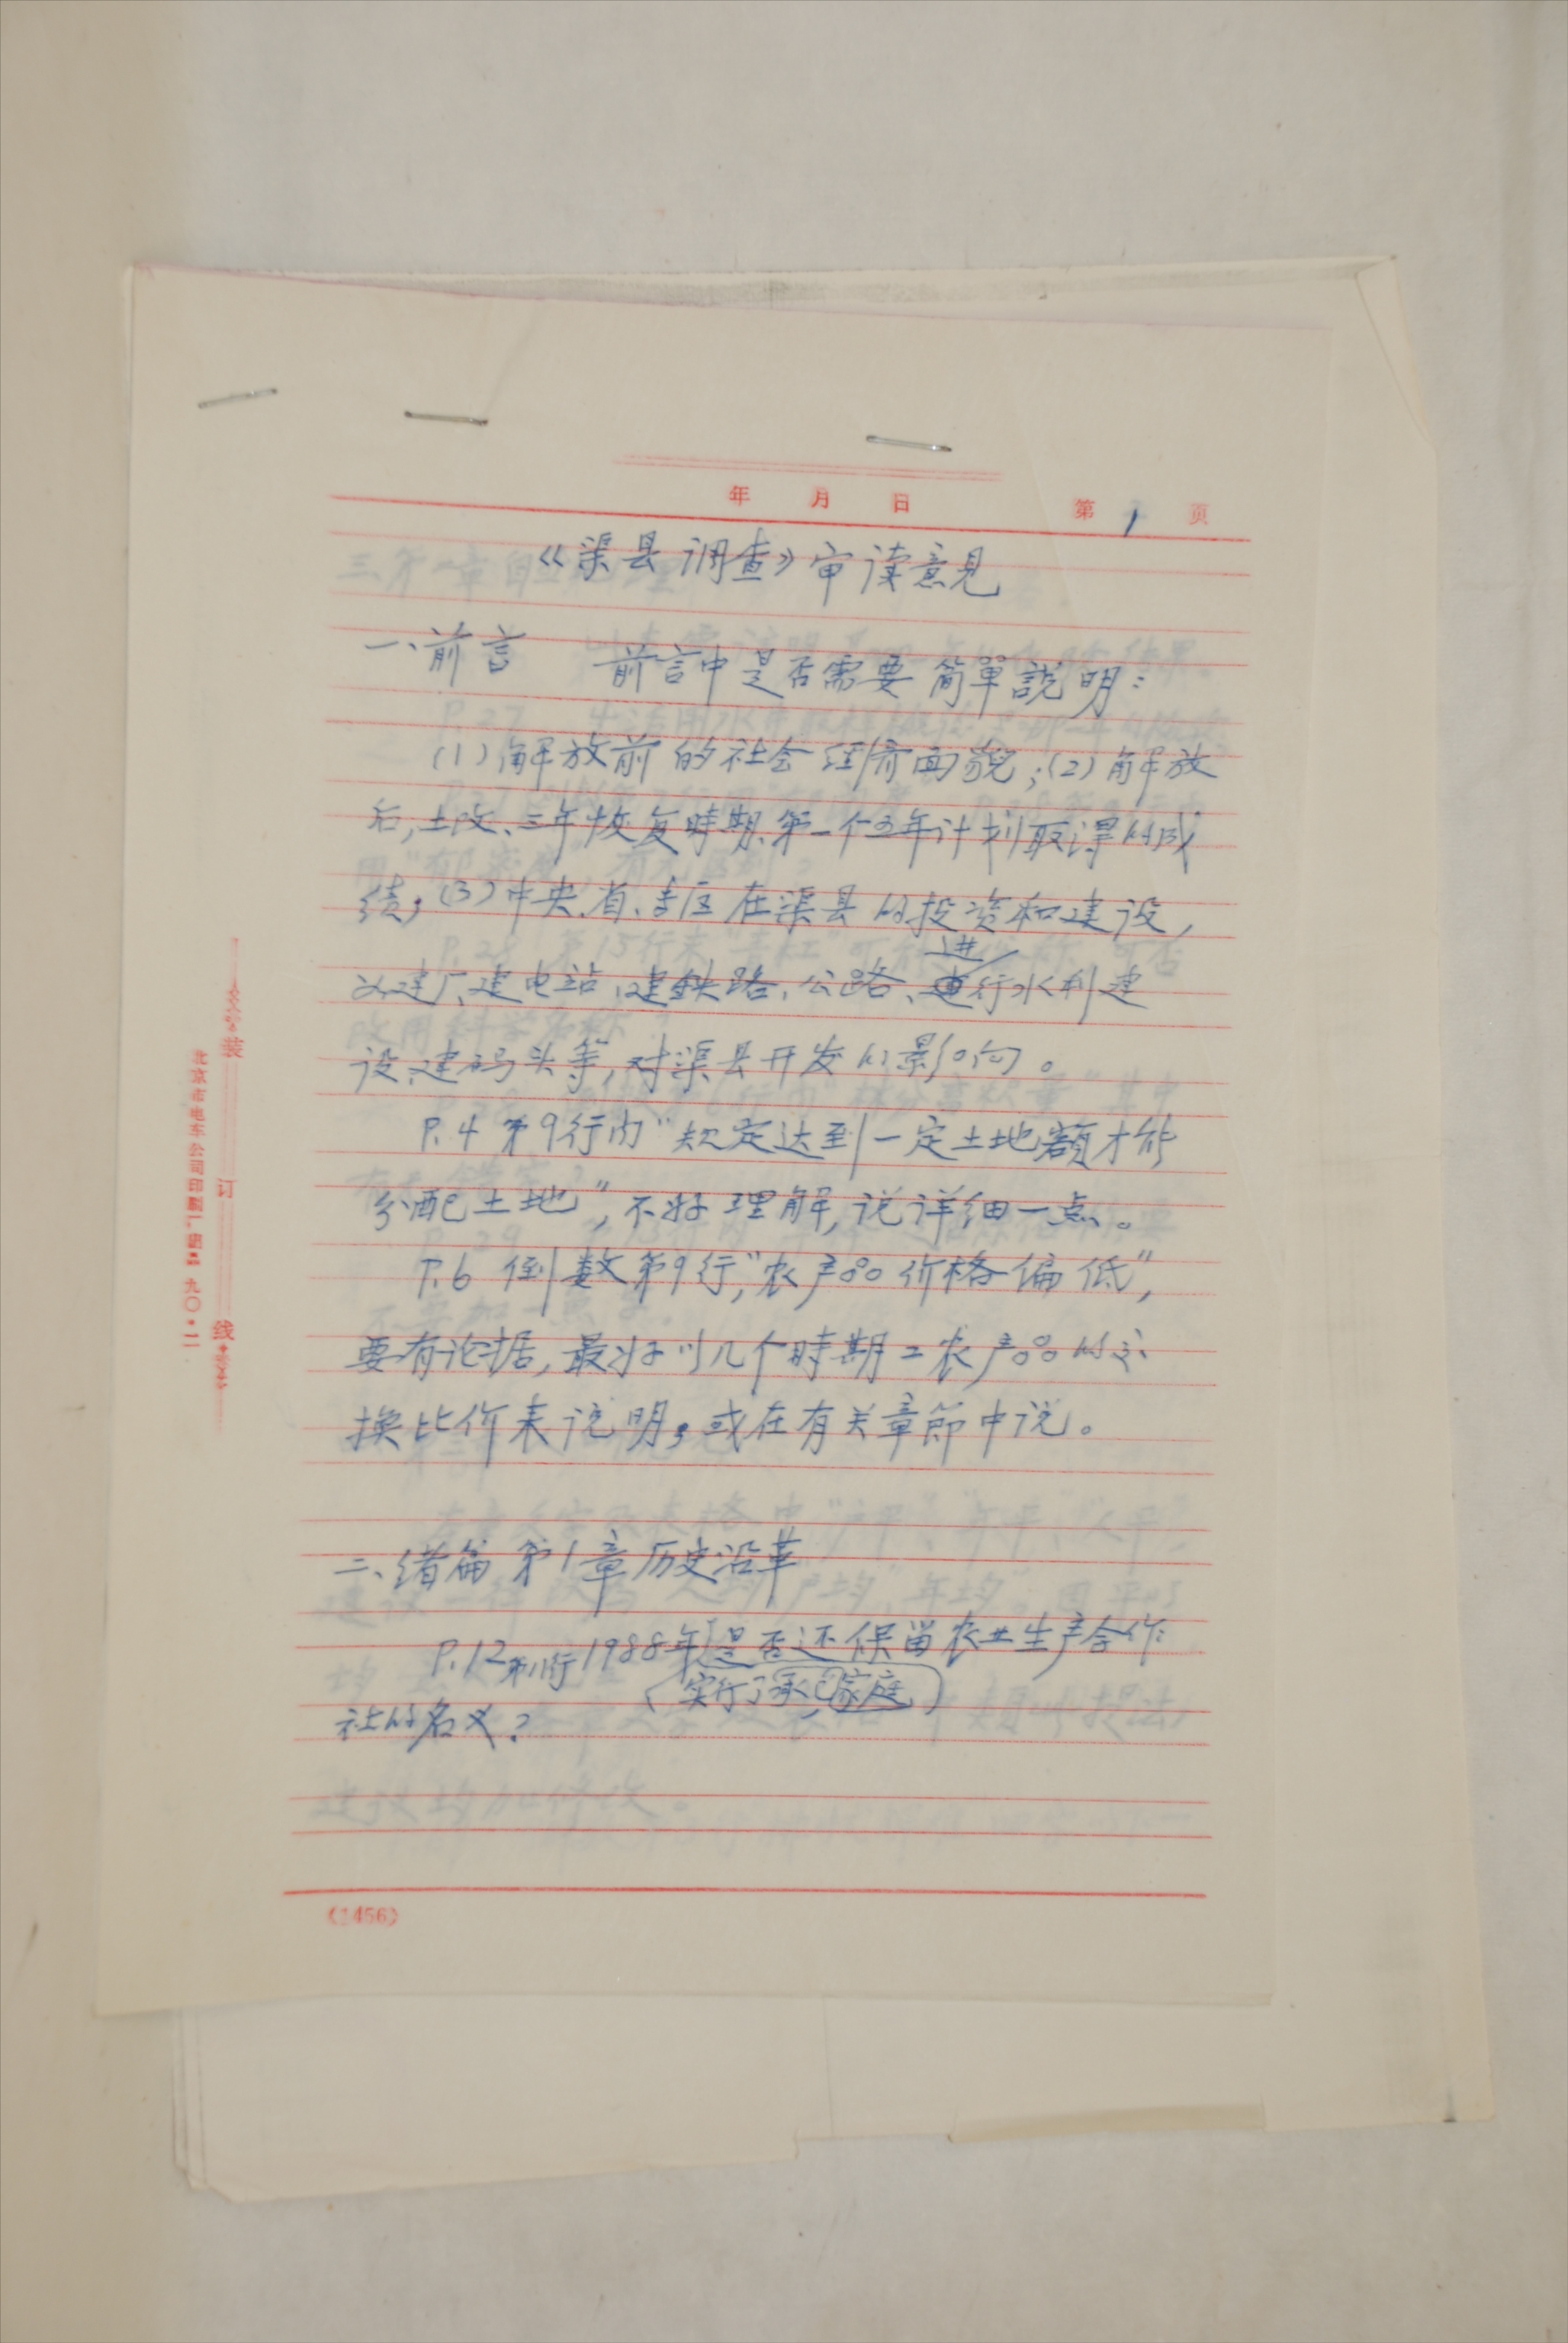 年 月 日 第 1 页
《渠县调查》审读意见
一、前言 前言中是否需要简單説明:
(1)解放前的社会经济面貌;(2)解放
后,土改、三年恢复時期、第一个五年计划取得的成
绩;(3)中央、省、专区在渠县的投资和建设,
如建厂、建电站、建鉄路、公路、进行水利建
设、建码头等,对渠县开发的影响。
P.4 第9行内"规定达到一定土地额才能
分配土地",不好理解,说详细一点。
P.6 倒数第9行,"农产品价格偏低",
要有论据,最好以几个時期工农产品的交
换比价来说明,或在有关章節中说。
二、绪篇 第1章历史沿革
P.12第11行1988年是否还保留农业生产合作
(实行了家庭承包)
社的名义?
装
订
线
北京市电车公司印刷厂出品 九〇·二
(1456)